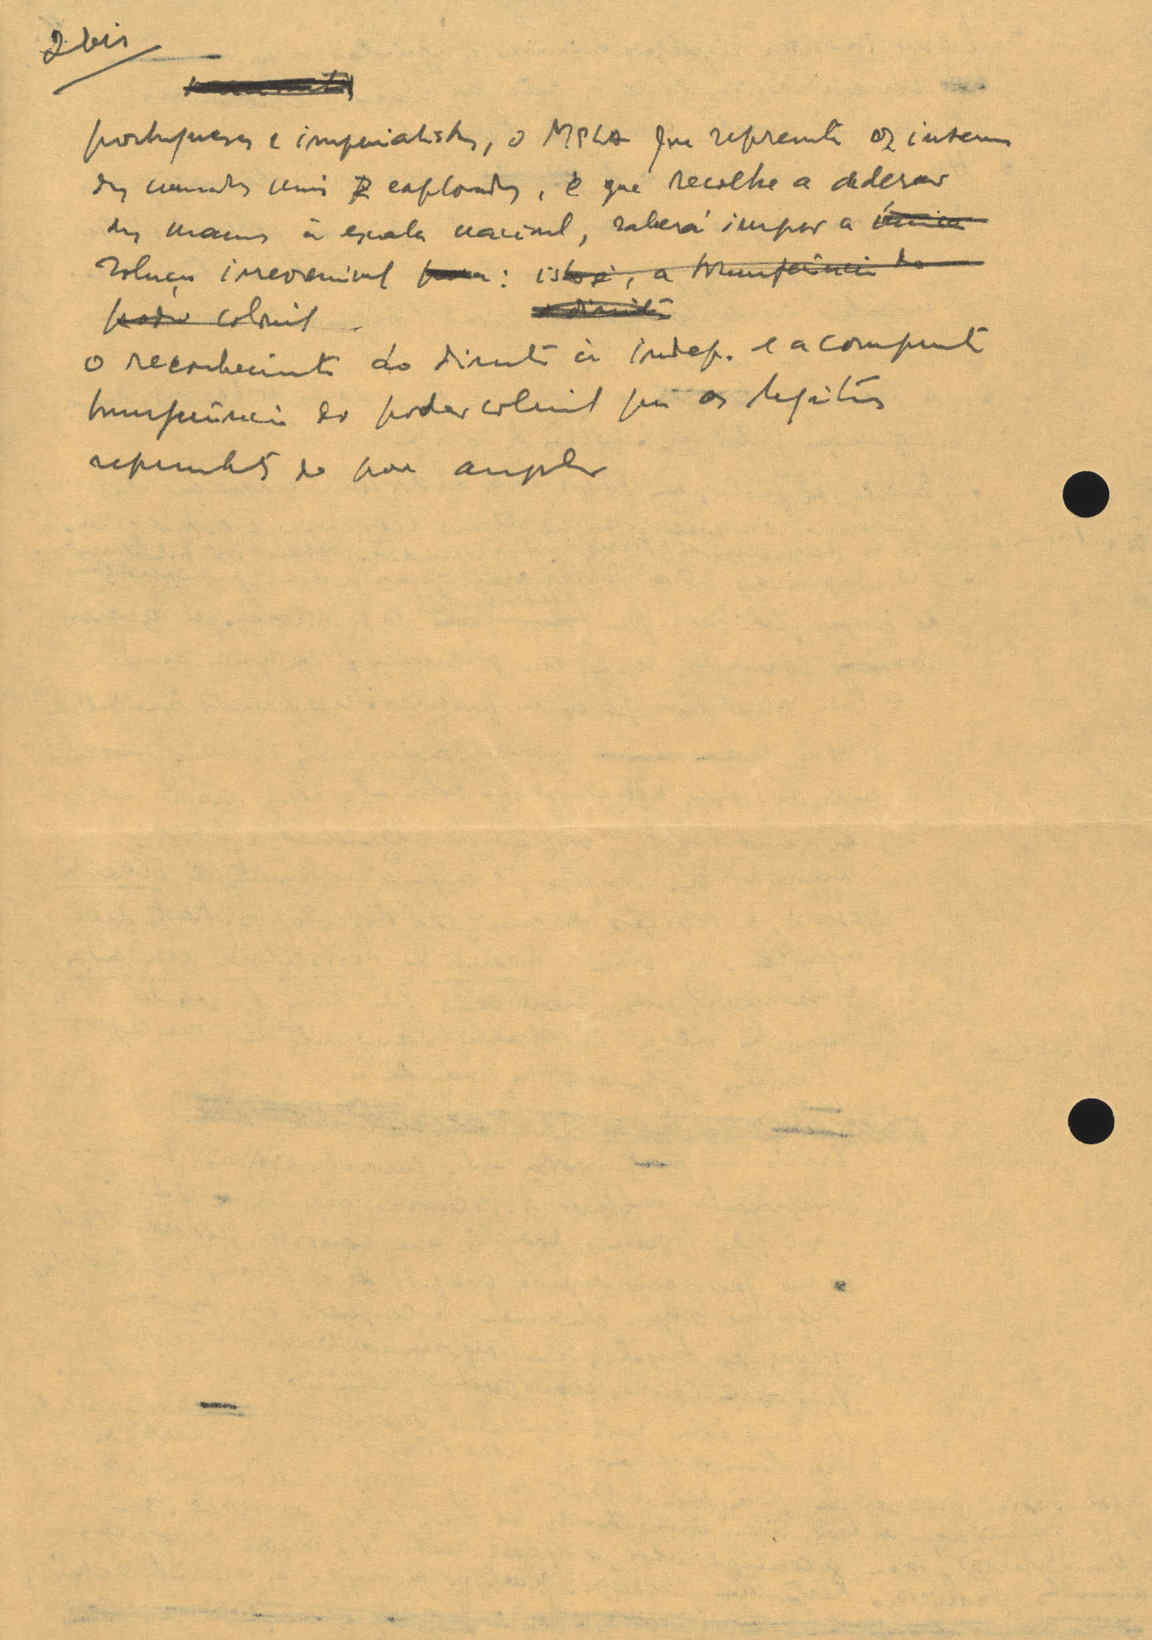 2 bis
portugueses e imperialistas, o MPLA que representa os interesses
das camadas mais exploradas, e que recolhe a adesão
das massas à escala nacional, saberá impor a única
solução irreversível para: isto é, a transferência do
poder colonial.
o reconhecimento do direito à indep. e a competente
transferência do poder colonial para os legítimos
representantes do povo angolano